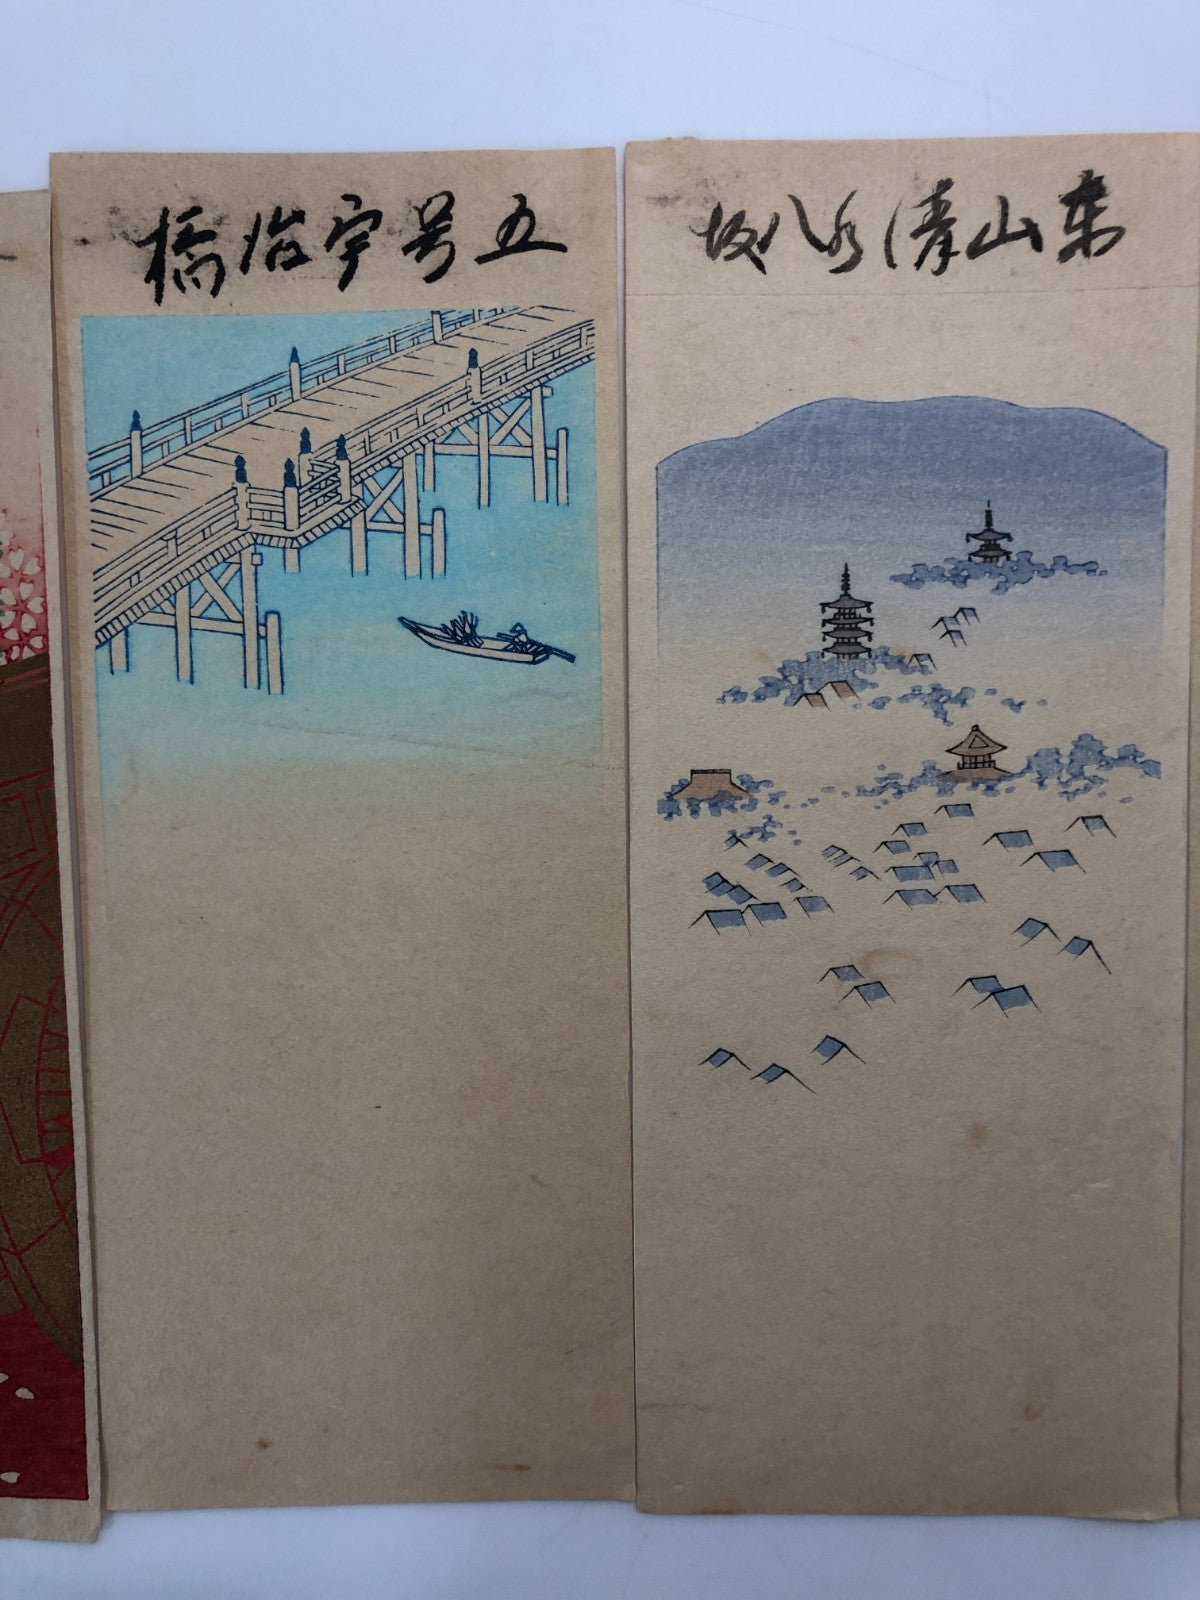 五号宇治橋
東山清水八坂